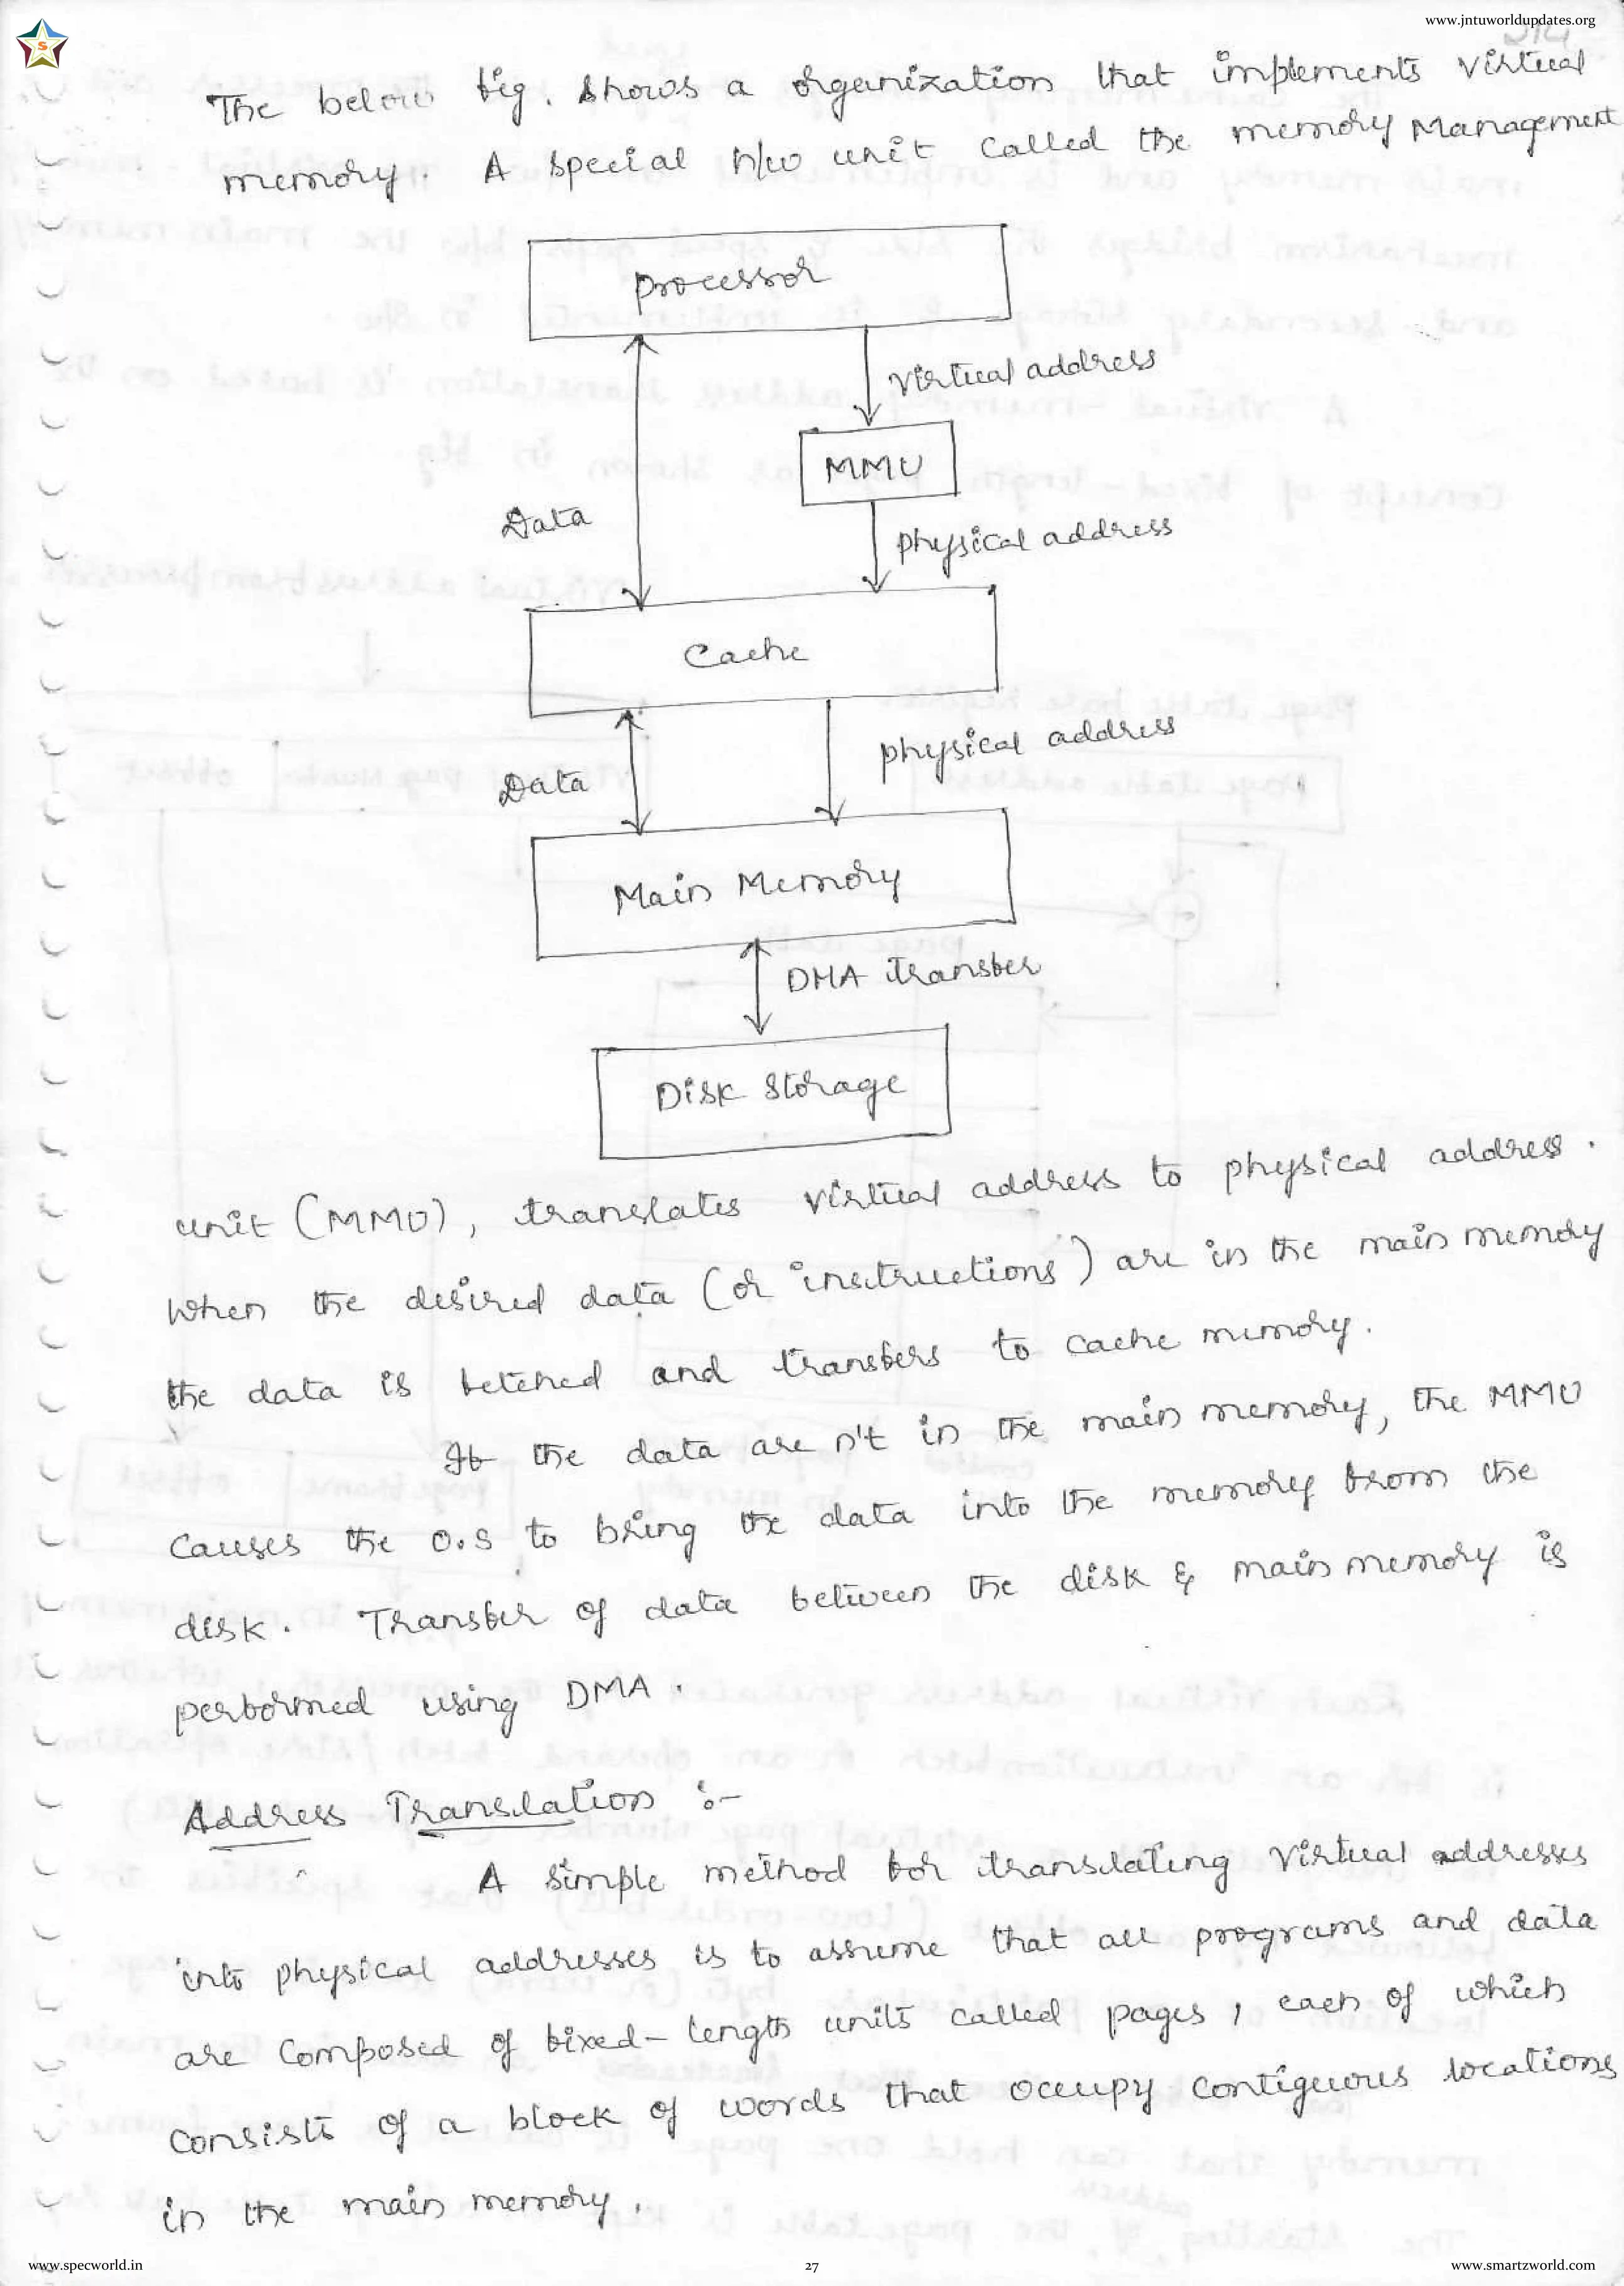 www.jntuworldupdates.org
S
214
The below fig. shows a organization that implements virtual
memory. A special h/w unit called the memory Management
Processor
Virtual address
MMU
Data
physical address
Cache
physical address
Data
Main Memory
DMA transfer
Disk Storage
unit (MMU), translates virtual address to physical address.
When the desired data (or instructions) are in the main memory
the data is fetched and transfers to cache memory.
If the data are n't in the main memory, the MMU
causes the O.S to bring the data into the memory from the
disk. Transfer of data between the disk & main memory is
performed using DMA.
Address Translation :-
A simple method for translating virtual addresses
into physical addresses is to assume that all programs and data
are composed of fixed-length units called pages, each of which
consists of a block of words that occupy contiguous locations
in the main memory.
www.specworld.in
27
www.smartzworld.com